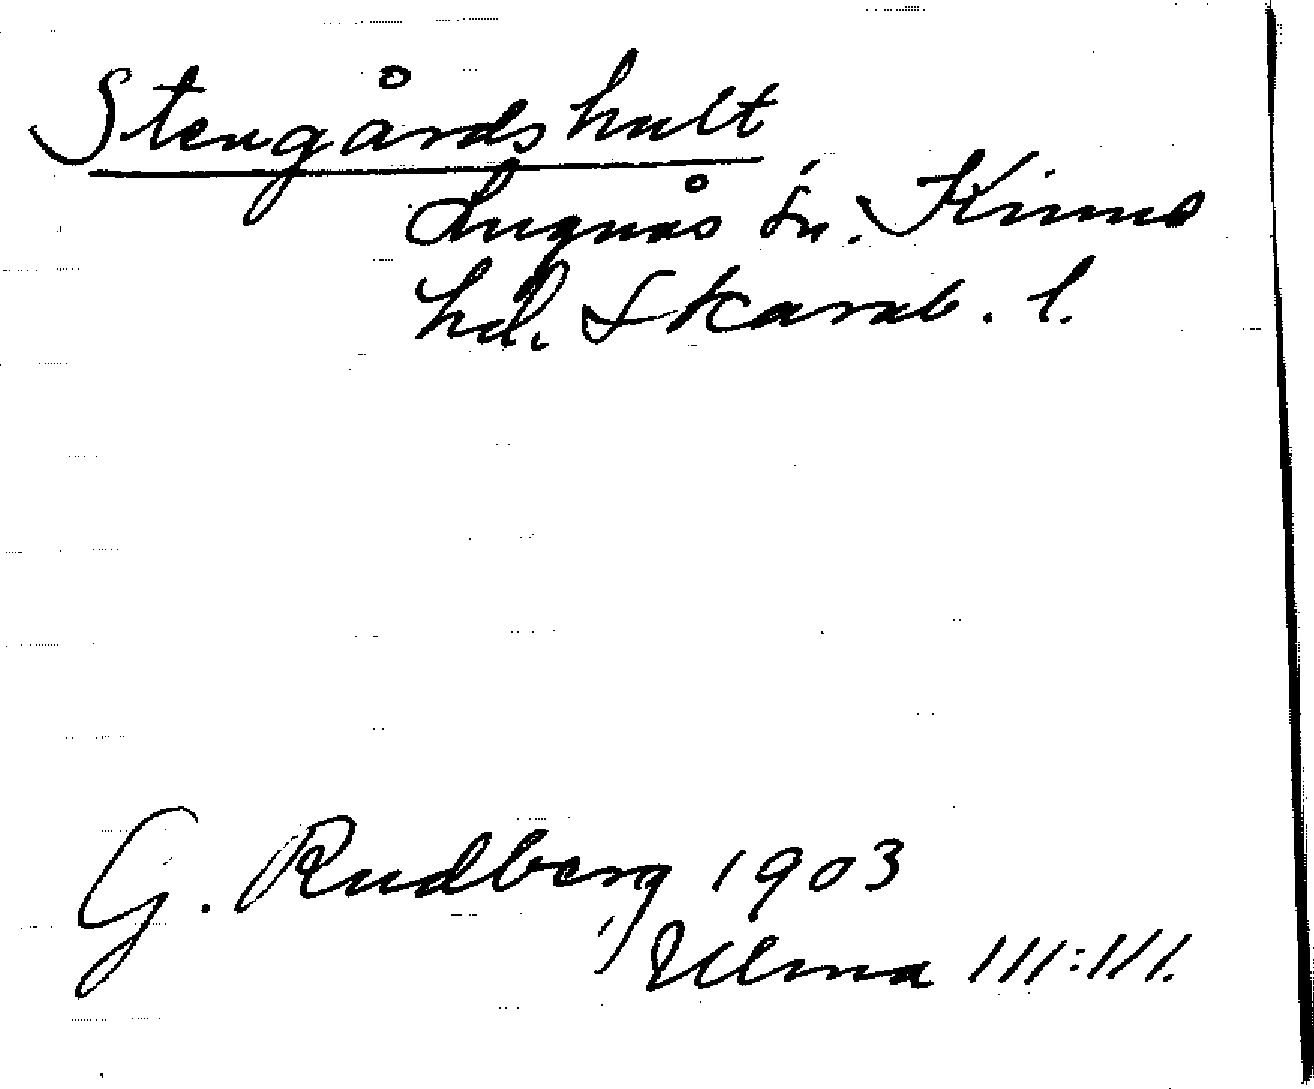 Stengårdshult
Lugnås sn. Kinne
hd. Skarab. l.
G. Rudberg 1903
Ulma 111:11.